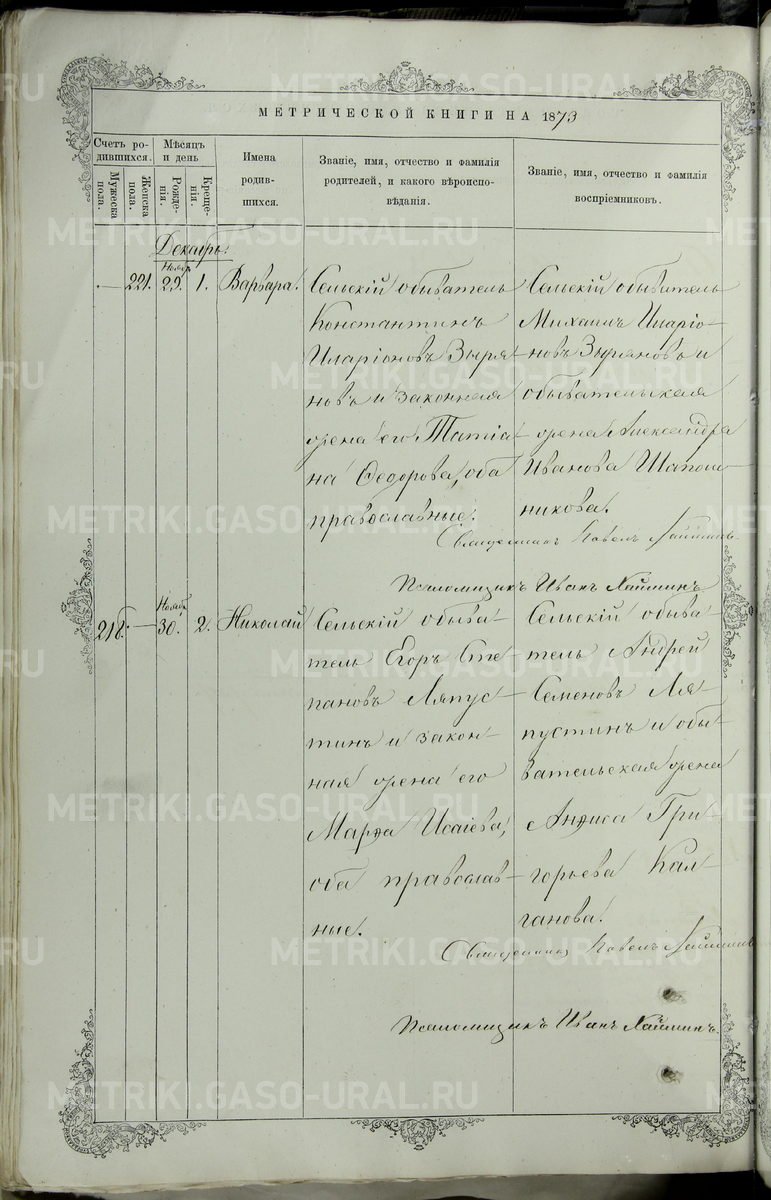 МЕТРИЧЕСКОЙ КНИГИ НА 1873
Счетъ родившихся.
Мужеска пола.
Женска пола.
Мѣсяцъ и день
Рожденія.
Крещенія.
Имена родившихся.
Званіе, имя, отчество и фамилія родителей, и какого вѣроисповѣданія.
Званіе, имя, отчество и фамилія воспріемниковъ.
Декабрь.
— 221. Ноябр 29. 1. Варвара.
Сельскій обыватель
Константинъ
Иларіоновъ Зыря-
новъ и законная
жена его Татіа-
на Ѳедорова, оба
православные.
Сельскій обыватель
Михаилъ Иларіо-
новъ Зыряновъ и
обывательская
жена Александра
Иванова Шапош-
никова.
Священникъ Павелъ
Псаломщикъ Иванъ Хаймин
218. — Ноябр 30. 2. Николай
Сельскій обыва-
тель Егоръ Сте
пановъ Ляпус-
тинъ и закон-
ная жена его
Марѳа Исаіева,
оба православ-
ные.
Сельскій обыва-
тель Андрей
Семеновъ Ля-
пустинъ и обы-
вательская жена
Анѳиса Гри-
горьева Кал-
ганова.
Священникъ Павелъ
Псаломщикъ Иванъ Хайминъ.
METRIKI.GASO-URAL.RU